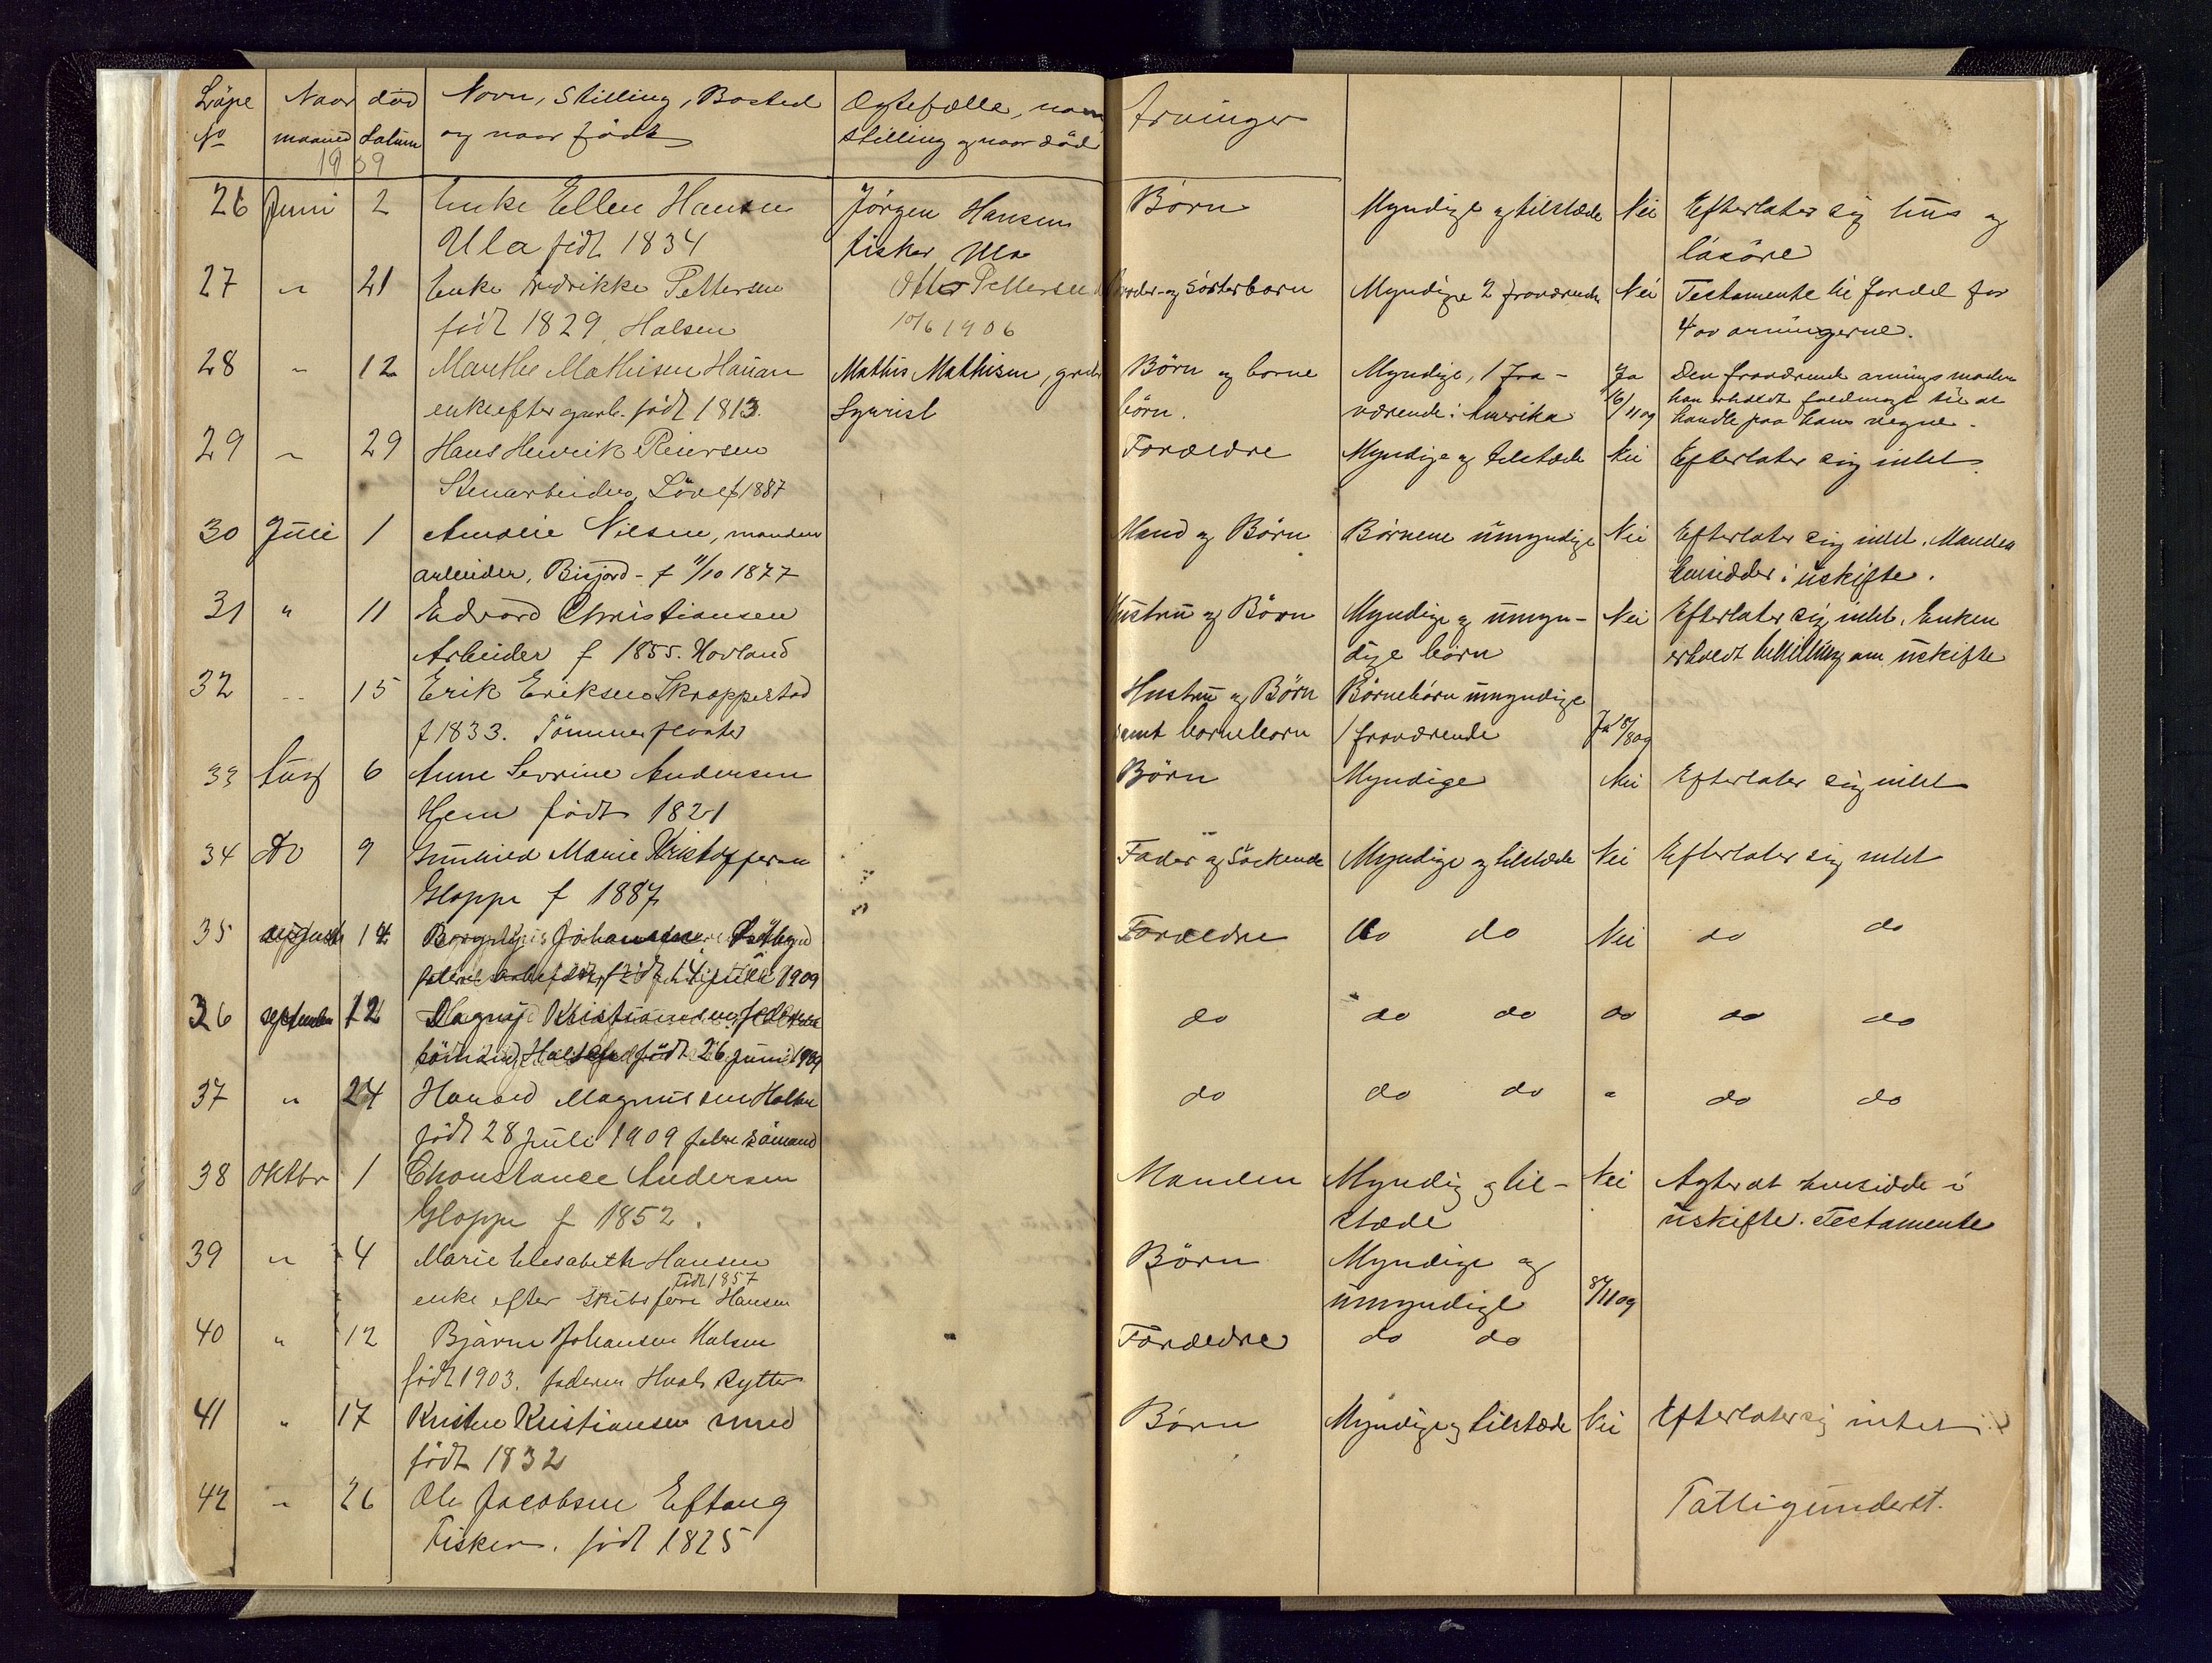 Löpe Naar död Navn, Stilling, Bosted Ægtefælle, navn Arvinger
No maaned Datum og naar födt stilling og naar död
1909
26 Juni 2 Enke Ellen Hansen Jörgen Hansen Börn Myndige og tilstæde Nei Efterlater sig hus og
Ula födt 1834 fisker Ula lösöre
27 " 21 Enke Fredrikke Pettersen Otto Pettersen Broder- og Sösterbørn Myndige 2 fraværende Nei Testamente til fordel for
født 1829, Halsen 10/6 1906 4 av arvingerne.
28 " 12 Marthe Mathisen Hauan Mathis Mathisen, grdbr Börn og barne Myndige, 1 fra- Ja Den fraværende arvings
enke efter gaardb. född 1813. börn. værende i Amerika 6/11 09 har erholdt fuldmagt til at
handle paa hans vegne.
29 " 29 Hans Henrik Reiersen Forældre Myndige og tilstæde Nei Efterlater sig intet.
Stenarbeider, f 1887
30 Juli 1 Amalie Nilsen, manden Mand og Börn Börnene umyndige Nei Efterlater sig intet. Manden
arbeider, Bisjord - f 11/10 1877 hensidder i uskifte.
31 " 11 Edvard Christiansen Hustru og Börn Myndige og umyn- Nei Efterlater sig intet. Enken
Arbeider f 1855. Hovland dige börn erholdt bevilling om uskifte
32 " 15 Erik Eriksen Skroppestad Hustru og Börn Börnebörn umyndige
f 1833. Tömmerfløater samt barnebørn 1 fraværende Ja 18/8 09
33 Aug 6 Anne Sevrine Andersen Börn Myndige Nei Efterlater sig intet
Hem født 1821
34 do 9 Gunhild Marie Kristoffersen Fader og Söskende Myndige og tilstæde Nei Efterlater sig intet
Gloppe f 1887
35 august 14 Johansen Forældre do do Nei do do
1909
36 september 12 Dagny Kristiansen do do do do do do
sömand, Halsen född 26 juni 1909
37 " 24 Harald Magnussen Halsen do do do " do do
född 28 Juli 1909 fader sömand
38 Oktbr 1 Chonstance Andersen Manden Myndig og til- Nei Agter at hensidde i
Gloppe f 1852. stæde uskifte. Testamente
39 " 4 Marie Elesabeth Hansen Börn Myndige og
Födt 1857
enke efter Skibsförer Hansen umyndige 8/11 09
40 " 12 Bjarne Johansen Halsen Forældre do do
född 1903. faderen Hvalskytter
41 " 17 Kristen Kristiansen Börn Myndige og tilstæde Nei Efterlater sig intet
födt 1832
42 " 26 Ole Jacobsen Eftang Fattigunderst.
Fisker. född 1825